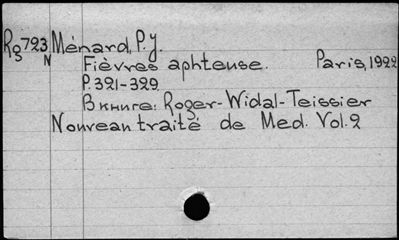 Rs 723 Ménard, P. J.
N Fièvres aphteuse. Paris, 1922
P. 321-329.
В книге: Roger-Widal-Teissier
Nouveau traité de Med. Vol. 2